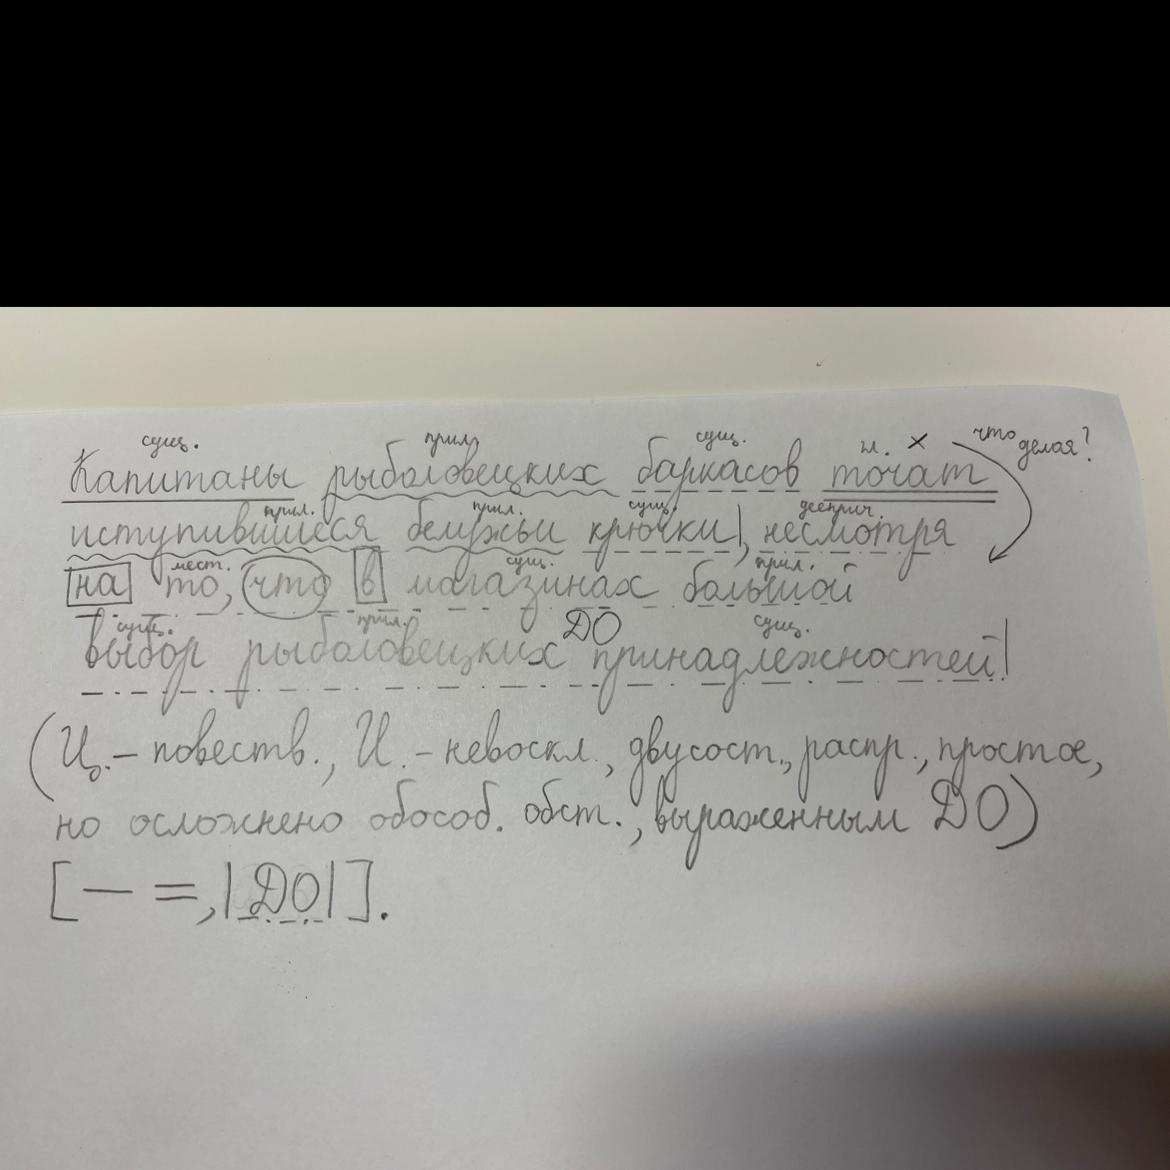 сущ. прил. сущ. н. × что делая?
Капитаны рыболовецких баркасов точат
прил. прил. сущ. дееприч.
иступившиеся белужьи крючки|, несмотря
мест. сущ. прил.
на то, что в магазинах большой
сущ. прил. ДО сущ.
выбор рыболовецких принадлежностей|
(Ц. – повеств., И. – невоскл., двусост., распр., простое,
но осложнено обособ. обст., выраженным ДО)
[— =, |ДО|].